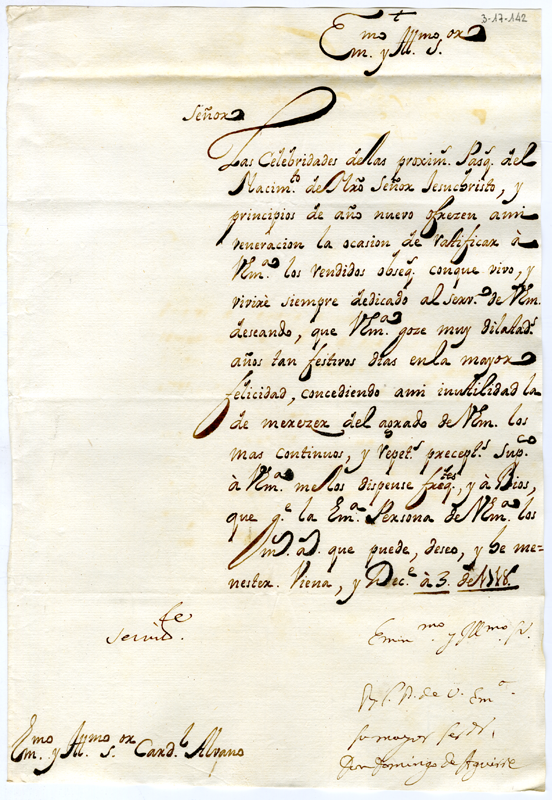 3-17-142
Em.mo y Ill.mo s.or
Señor
Las Celebridades de las proxim.s Pasq.s del
Nacim.to de Nro Señor Jesuchristo, y
principios de año nuevo ofrezen ami
veneracion la ocasion de ratificar à
V.Em.a los rendidos obseq. conque vivo, y
vivirè siempre dedicado al serv.o de V.Em.
deseando, que V.Em.a goze muy dilatad.s
años tan festivos dias en la mayor
felicidad, concediendo ami inutilidad la
de merezer del agrado de V.Em. los
mas continuos, y repet.s precept.s sup.co
à V.Em.a me los dispense freq.tes, y à Dios,
que g.e la Em.a Persona de V.Em.a los
m.s a.s que puede, deseo, y he me-
nester. Viena, y Dec.e à 3. de 1718.
Emin.mo y Ill.mo Sr.
B. L. P. de V. Em.a
su mayor ser.or
Don Domingo de Aguirre
Em.mo y Ill.mo s.or Card.l Alvano